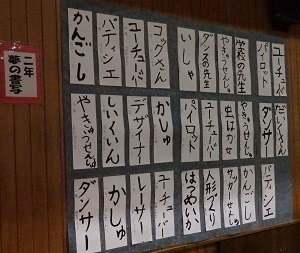 二年
夢の書写
ユーチューバー
パイロット
学校の先生
やきゅうせんしゅ
ダンスの先生
いしゃ
コックさん
ユーチューバー
パティシエ
かんごし
だいくさん
ダンサー
やきゅうせんしゅ
虫はかせ
ユーチューバー
パイロット
かしゅ
デザイナー
しいくいん
やきゅうせんしゅ
パティシエ
かんごし
サッカーせんしゅ
人形づくり
はつめいか
ユーチューバー
レーサー
かしゅ
ダンサー